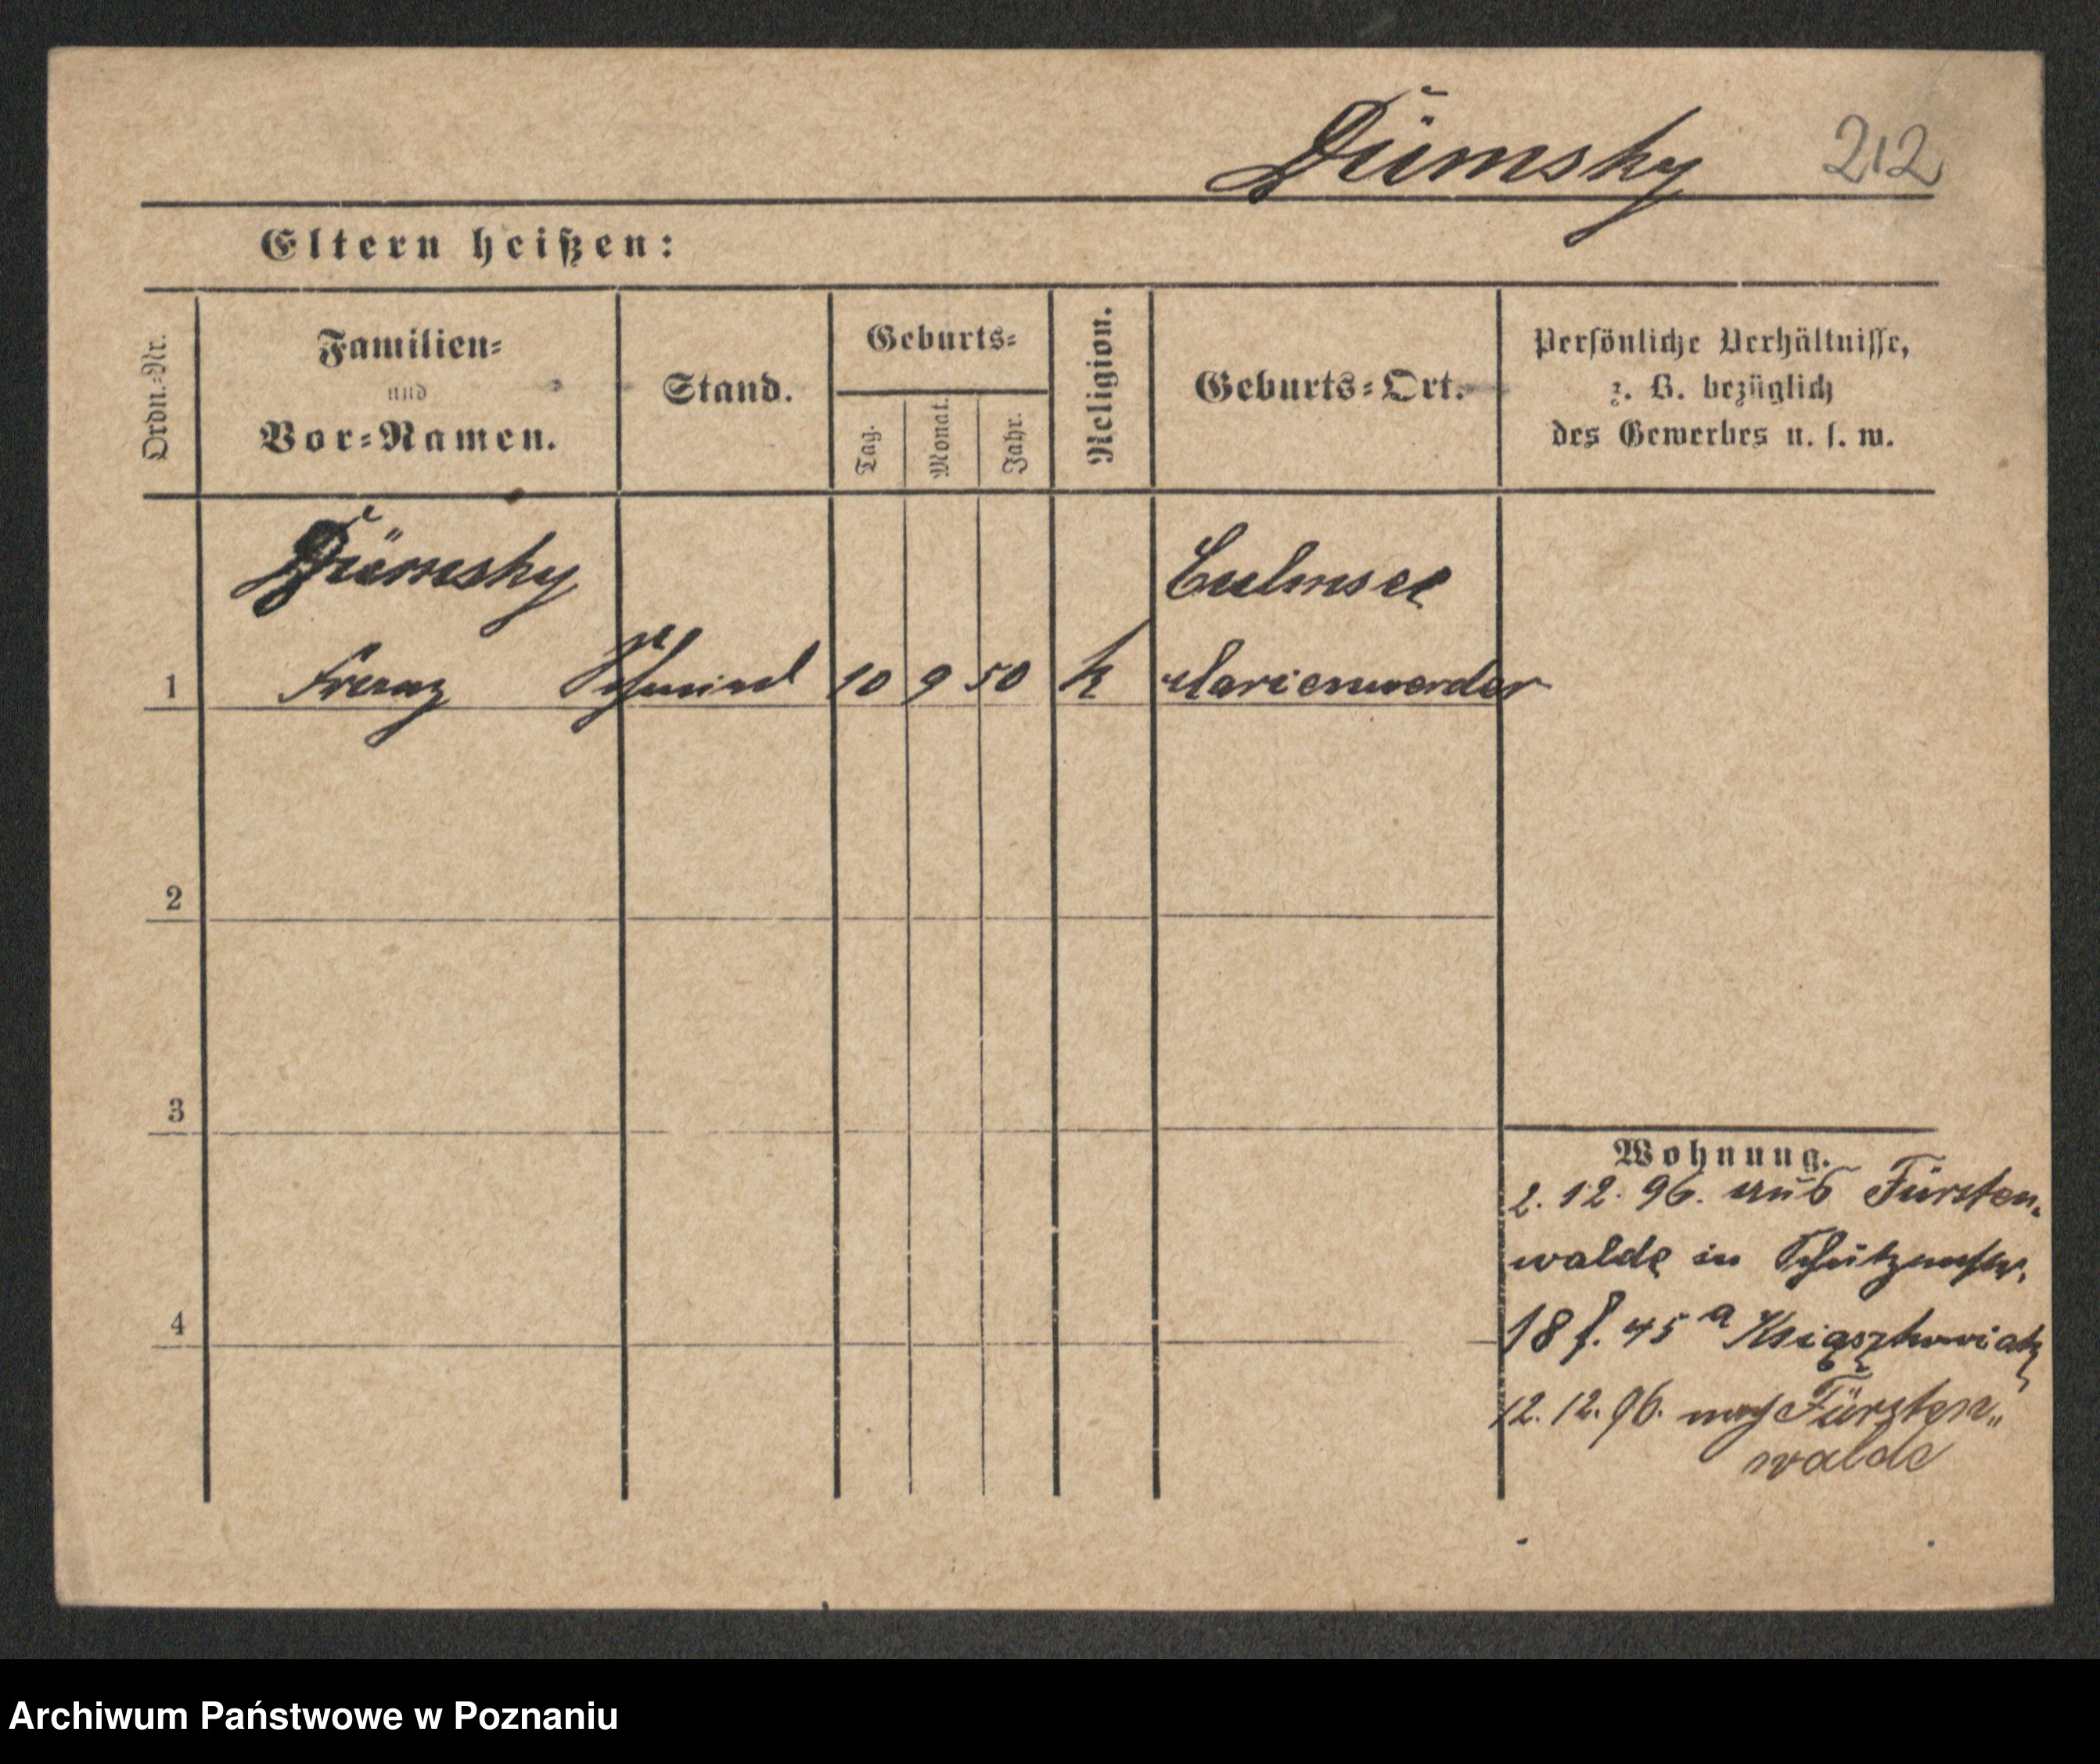 Dümsky 212
Eltern heißen:
Ordn.-Nr.
Familien-
und
Vor-Namen.
Stand.
Geburts-
Tag.
Monat.
Jahr.
Religion.
Geburts-Ort.
Persönliche Verhältnisse,
z. B. bezüglich
des Gewerbes u. s. w.
Dümsky Culmsee
1 Franz Schmied 10 9 50 k Marienwerder
2
3
4
Wohnung.
2. 12. 96. aus Fürsten-
walde in Schützenstr.
18 f. 45 a
12. 12. 96. nach Fürsten-
walde
Archiwum Państwowe w Poznaniu